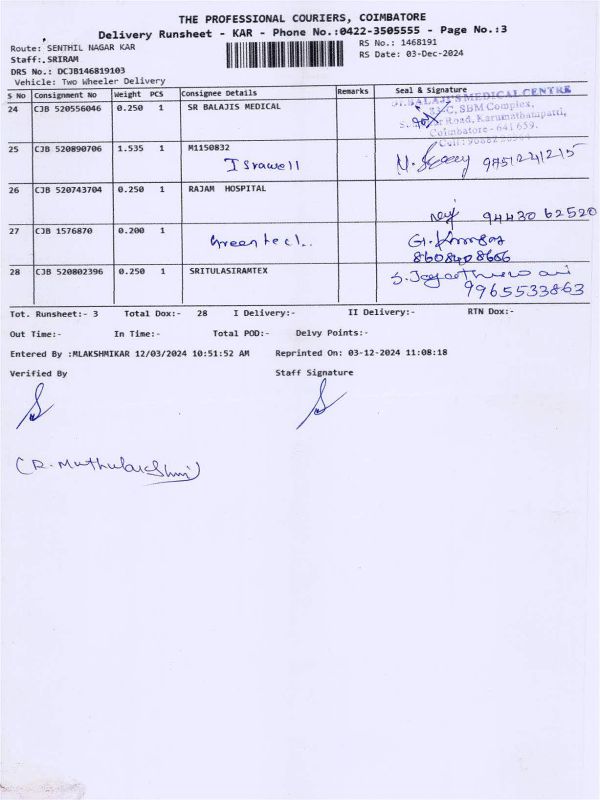 THE PROFESSIONAL COURIERS, COIMBATORE
Delivery Runsheet - KAR - Phone No.:0422-3505555 - Page No.:3
Route: SENTHIL NAGAR KAR RS No.: 1468191
Staff:.SRIRAM RS Date: 03-Dec-2024
DRS No.: DCJB146819103
Vehicle: Two Wheeler Delivery
S No Consignment No Weight PCS Consignee Details Remarks Seal & Signature
24 CJB 520556046 0.250 1 SR BALAJIS MEDICAL
BALAJI'S MEDICAL CENTRE
SBM Complex,
Road, Karumathampatti,
Coimbatore - 641 659.
25 CJB 520890706 1.535 1 M1150832
Israwell 9751241215
26 CJB 520743704 0.250 1 RAJAM HOSPITAL
94430 62520
27 CJB 1576870 0.200 1
Greentech..
8608408666
28 CJB 520802396 0.250 1 SRITULASIRAMTEX
9965533863
Tot. Runsheet:- 3 Total Dox:- 28 I Delivery:- II Delivery:- RTN Dox:-
Out Time:- In Time:- Total POD:- Delvy Points:-
Entered By :MLAKSHMIKAR 12/03/2024 10:51:52 AM Reprinted On: 03-12-2024 11:08:18
Verified By Staff Signature
(R. Muthulakshmi)